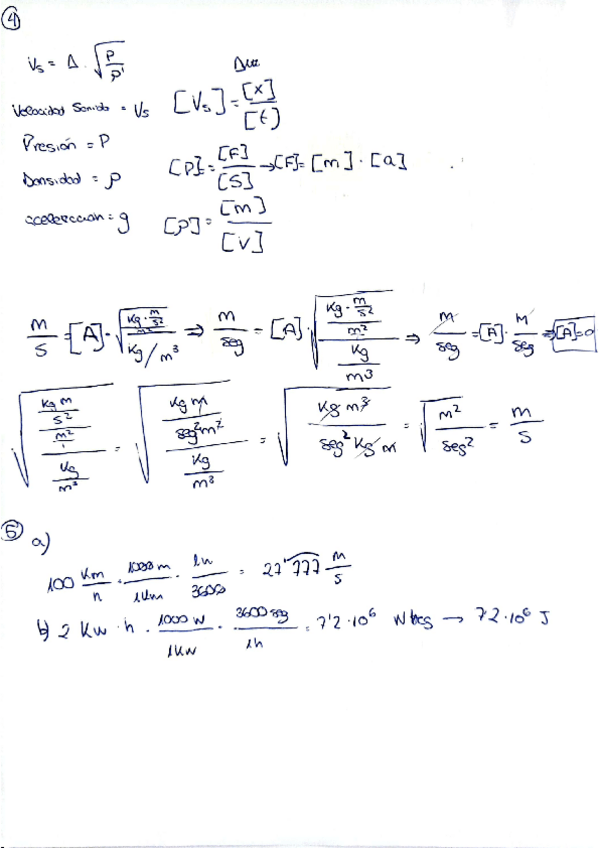 ④
Vs = A · √(P/ρ)
Velocidad Sonido = Vs [Vs] = [x]/[t]
Presión = P [P] = [F]/[S] → [F] = [m] · [a]
Densidad = ρ [ρ] = [m]/[V]
aceleración = g
m/s = [A] · √((Kg · m/s²/m²)/(Kg/m³)) ⇒ m/seg = [A] · √((Kg · m/s²/m²)/(Kg/m³)) ⇒ m/seg = [A] · m/seg ⇒ [A] = 0
√((Kg m/s²/m²/1)/(Kg/m³)) = √((Kg m/seg² m²)/(Kg/m³)) = √(Kg m³/seg² Kg m) = √(m²/seg²) = m/s
⑤ a)
100 Km/h · 1000 m/1 Km · 1h/3600 = 27'777 m/s
b) 2 Kw · h · 1000 W/1 KW · 3600 seg/1h = 7'2 · 10⁶ → 7'2 · 10⁶ J